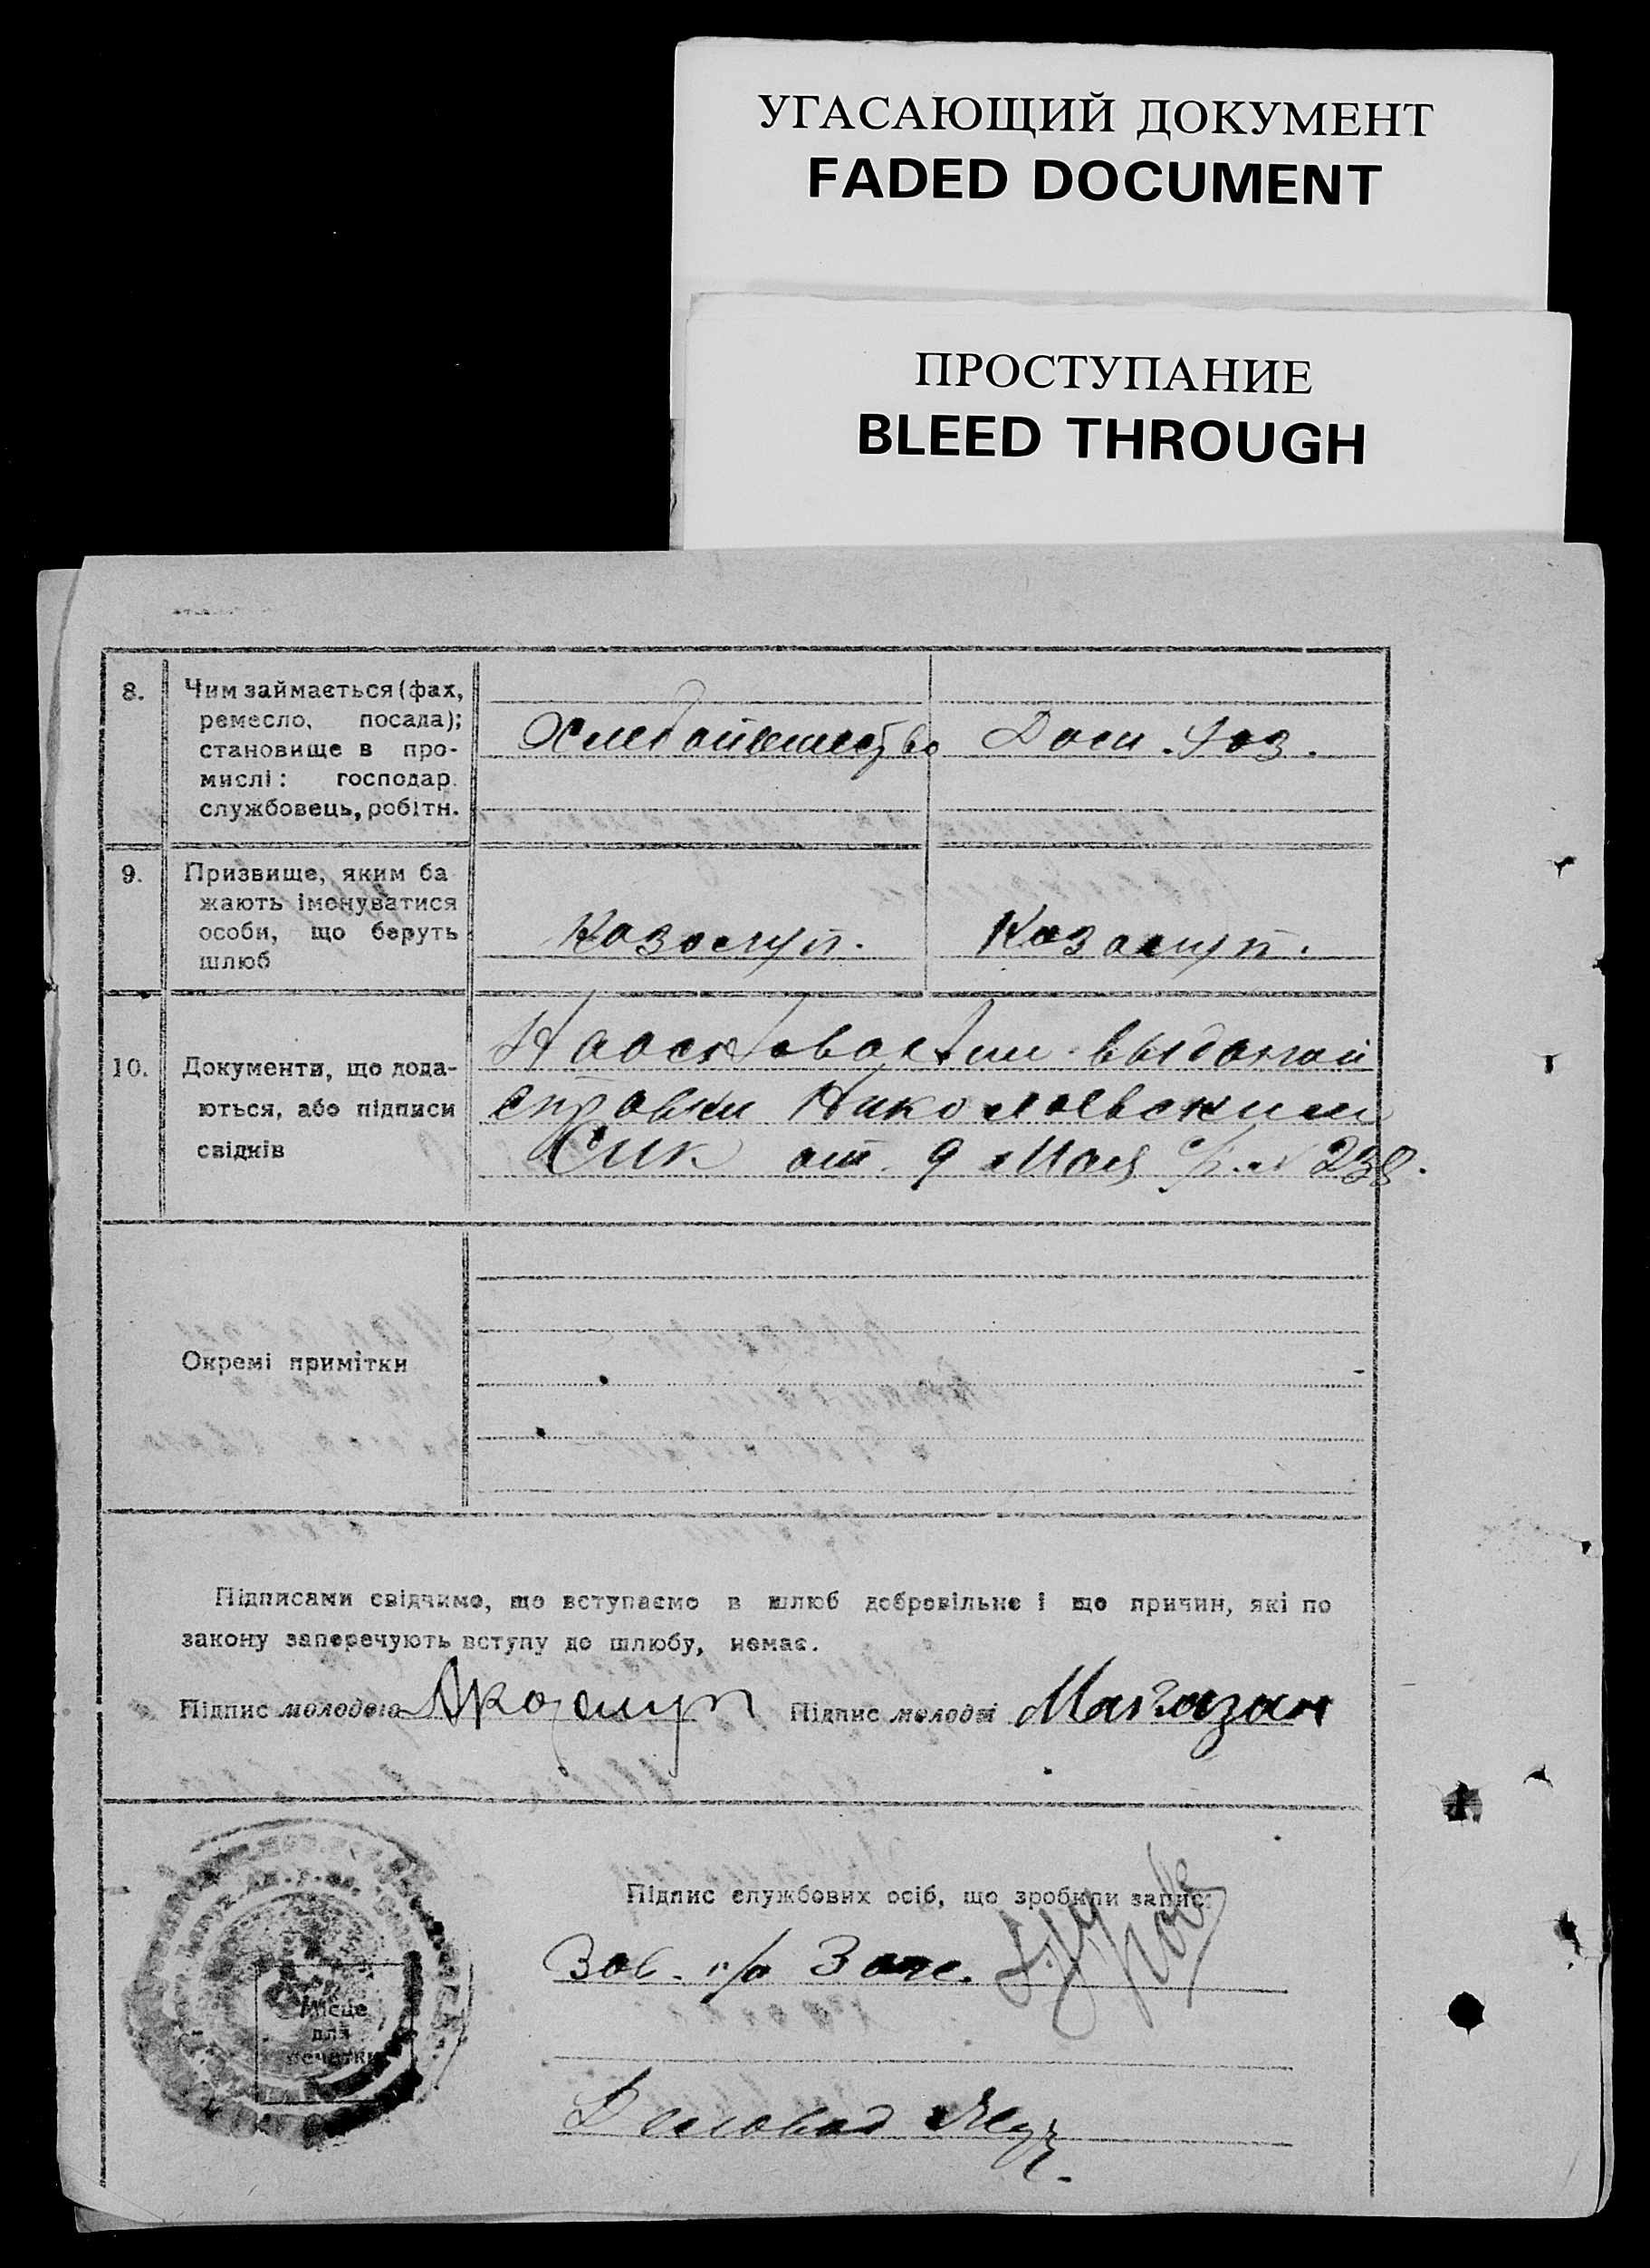 УГАСАЮЩИЙ ДОКУМЕНТ
FADED DOCUMENT
ПРОСТУПАНИЕ
BLEED THROUGH
8. Чим займається (фах,
ремесло, посада);
становище в про-
мислі: господар.
службовець, робітн.
Хлебопашество Дом. Хоз.
9. Призвище, яким ба
жають іменуватися
особи, що беруть
шлюб
Козолуп. Козолуп.
10. Документи, що дода-
ються, або підписи
свідків
На основании выданой
справки Николаевским
Сик от 9 Мая с/г. № 238.
Окремі примітки
Підписами свідчимо, що вступаємо в шлюб добровільне і що причин, які по
закону заперечують вступу до шлюбу, немає.
Підпис молодого Козолуп Підпис молодої Магазан
Місце
для
печатки
Підпис службових осіб, що зробили запис:
Зав. п/о Загс.
Деловод